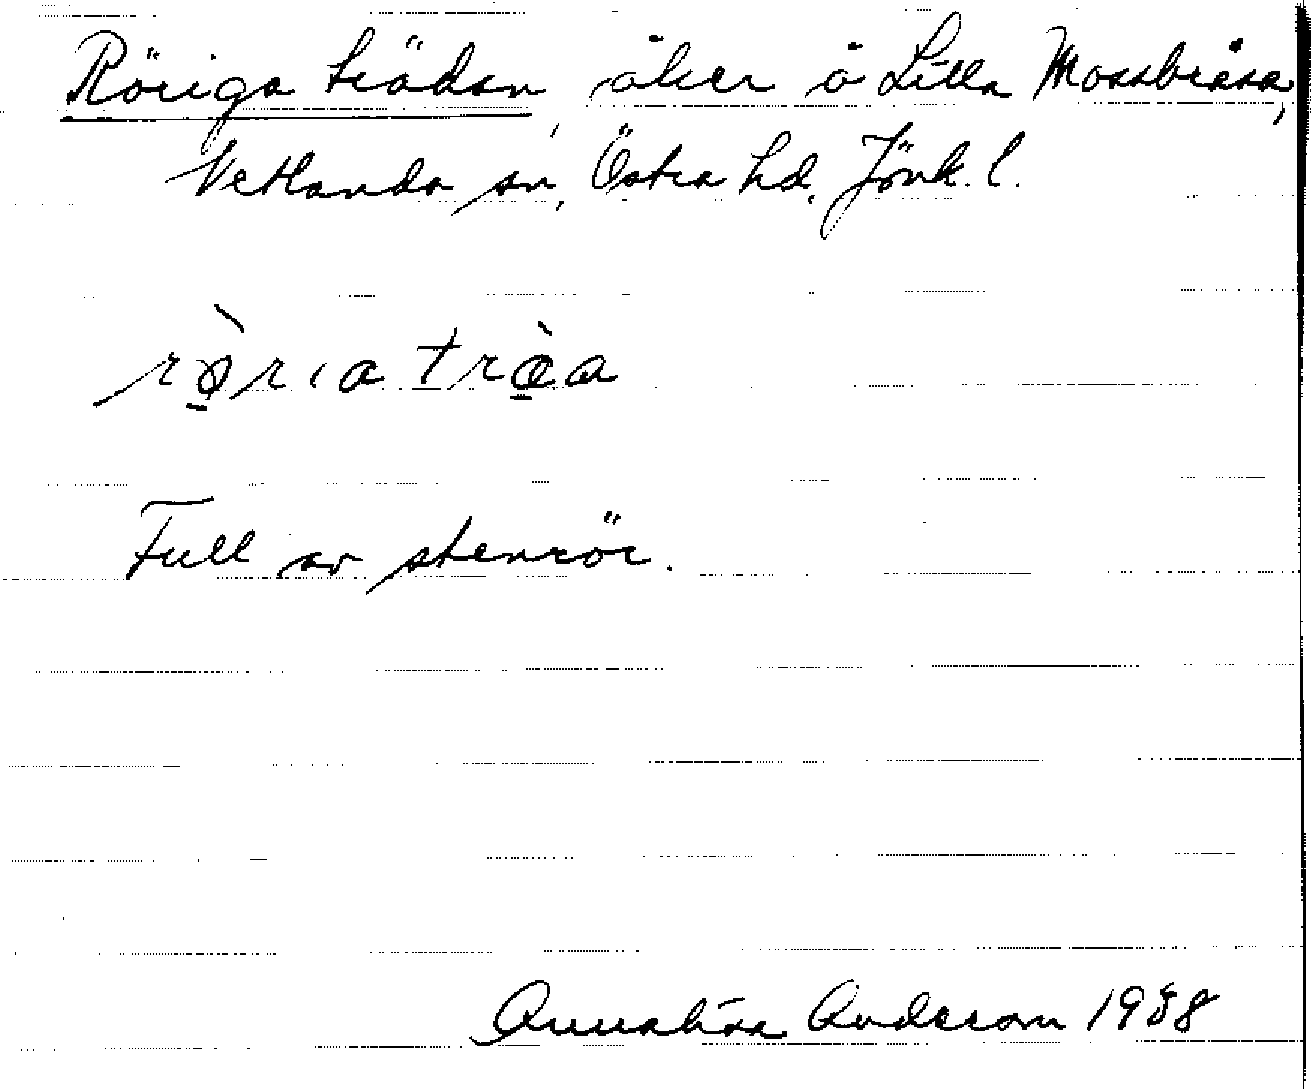 Röriga trädan, åker å Lilla Mossbråsa,
Vetlanda sn, Östra hd, Jönk. l.
rø̠̀rıa trὰ̠a
Full av stenrör.
Annalisa Anderson 1988